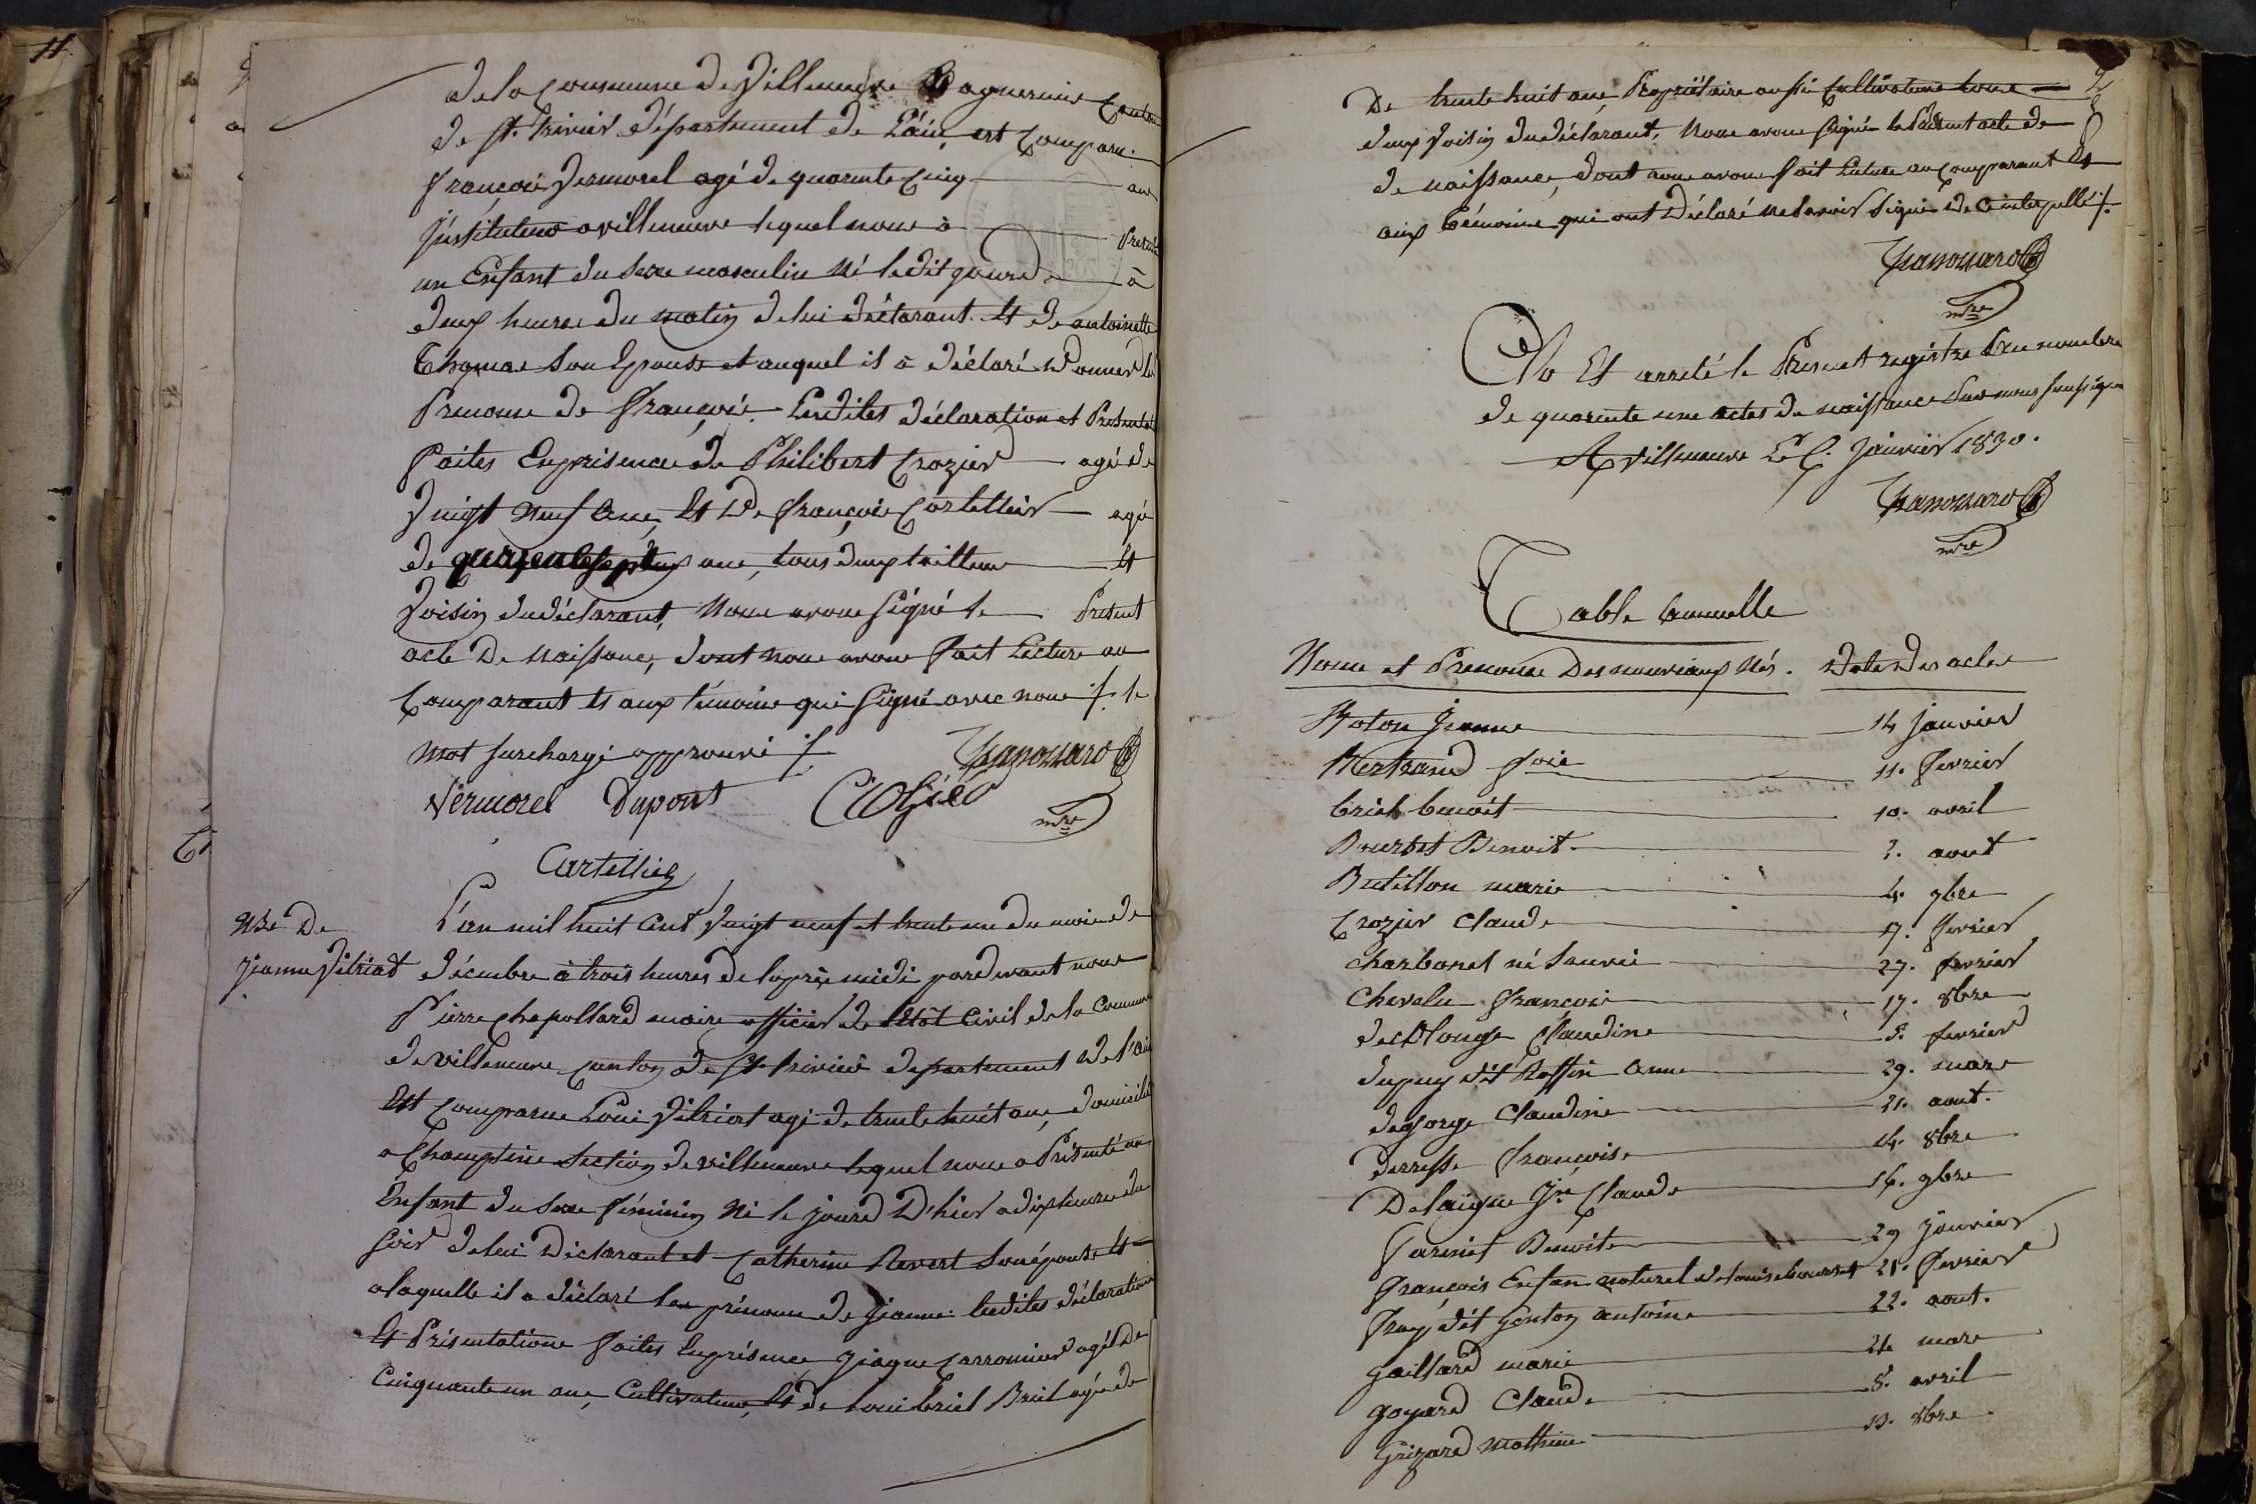 11
de la Commune de Villeneuve & agnereins Canton
de St. trivier département de L'ain, est Comparu
françois Vermorel agé de quarante Cinq ans
Jnstituteur a villeneuve lequel nous à Présenté
un Enfant du Sexe masculin Né ledit jour de à
deux heures du matin de lui déclarant Et de antoinette
Thomas Son Epouse et auquel il à déclaré donner les
Prenoms de François Lesdites déclaration et Presentat
faites En présence de Philibert Crozier agé de
Vingt Neuf Ans, Et De françois Cortellier agé
de quarente sept ans, tous deux tailleurs Et
Voisin du déclarant, Nous avons Signé le Présent
acte De Naissance, dont nous avons fait Lecture au
Comparant Et aux témoins qui Signé avec nous ./. le
mot surchargé approuvé ./.
Vermorel Dupont Crozier
mre
Cartellier
Nce De
Jeanne Vitriat
L'an mil huit Cent Vingt neuf et trente un du mois de
décembre à trois heures de laprès midi pardevant nous
Pierre Chapollard maire officier de l'Etat Civil de la Commune
de villeneuve Canton de St trivier departement de l'ain
Est Comparu Loui Vitriat agé de trente huit ans, domicilié
a Champtins Section de villeneuve lequel nous a Présenté un
Enfant du Sexe féminin Né le jour D'hier a dix heures du
Soir de lui Déclarant et Catherine Revert Son épouse Et
a laquelle il a déclaré les prénoms de Jeanne. lesdites déclarations
Et Présentations faites En présence Jaque Carronier agé de
Cinquante un ans, Cultivateur, Et de Loui briel Bruel agé de
De trente huit ans, Propriétaire aussi Cultivateurs tous
deux Voisin du déclarant, Nous avons Signé le Présent acte de
de naissance, dont nous avons fait Lecture au Comparant Et
aux Témoins qui ont Déclaré ne Savoir Signé de Ce interpellé ./.
mre
Clo Et arrêté le Présent registre Sau nombre
de quarente une actes de naissance Par nous Soussigné
A villeneuve Le 1. Janvier 1830.
mre
Table Annuelle
Noms et Prenoms Des nouveaux Nés. Date Des actes
Boton Jeanne 14 janvier
Bertrand foix 11. fevrier
briel benoit 10. avril
Bourbet Benoit 2. aout
Butillon marie 4. 9bre
Crozier Claude 17. fevrier
Charbonet né Sauvie 27. fevrier
Chevalu François 17. 8bre
declouge Claudine 5. fevrier
dupuy dit Raffin Anne 29. mars
degorge Claudine 21. aout.
derresse françoise 14. 8bre
Delaigue Jn Claude 16. 9bre
Farinet Benoite 29 janvier
françois Enfan naturel de louise bourset 21. fevrier
Fray dit genton antoine 22. aout.
gaillard marie 24 mars
goyard Claude 8. avril
Grizard Mathieu 13. 8bre